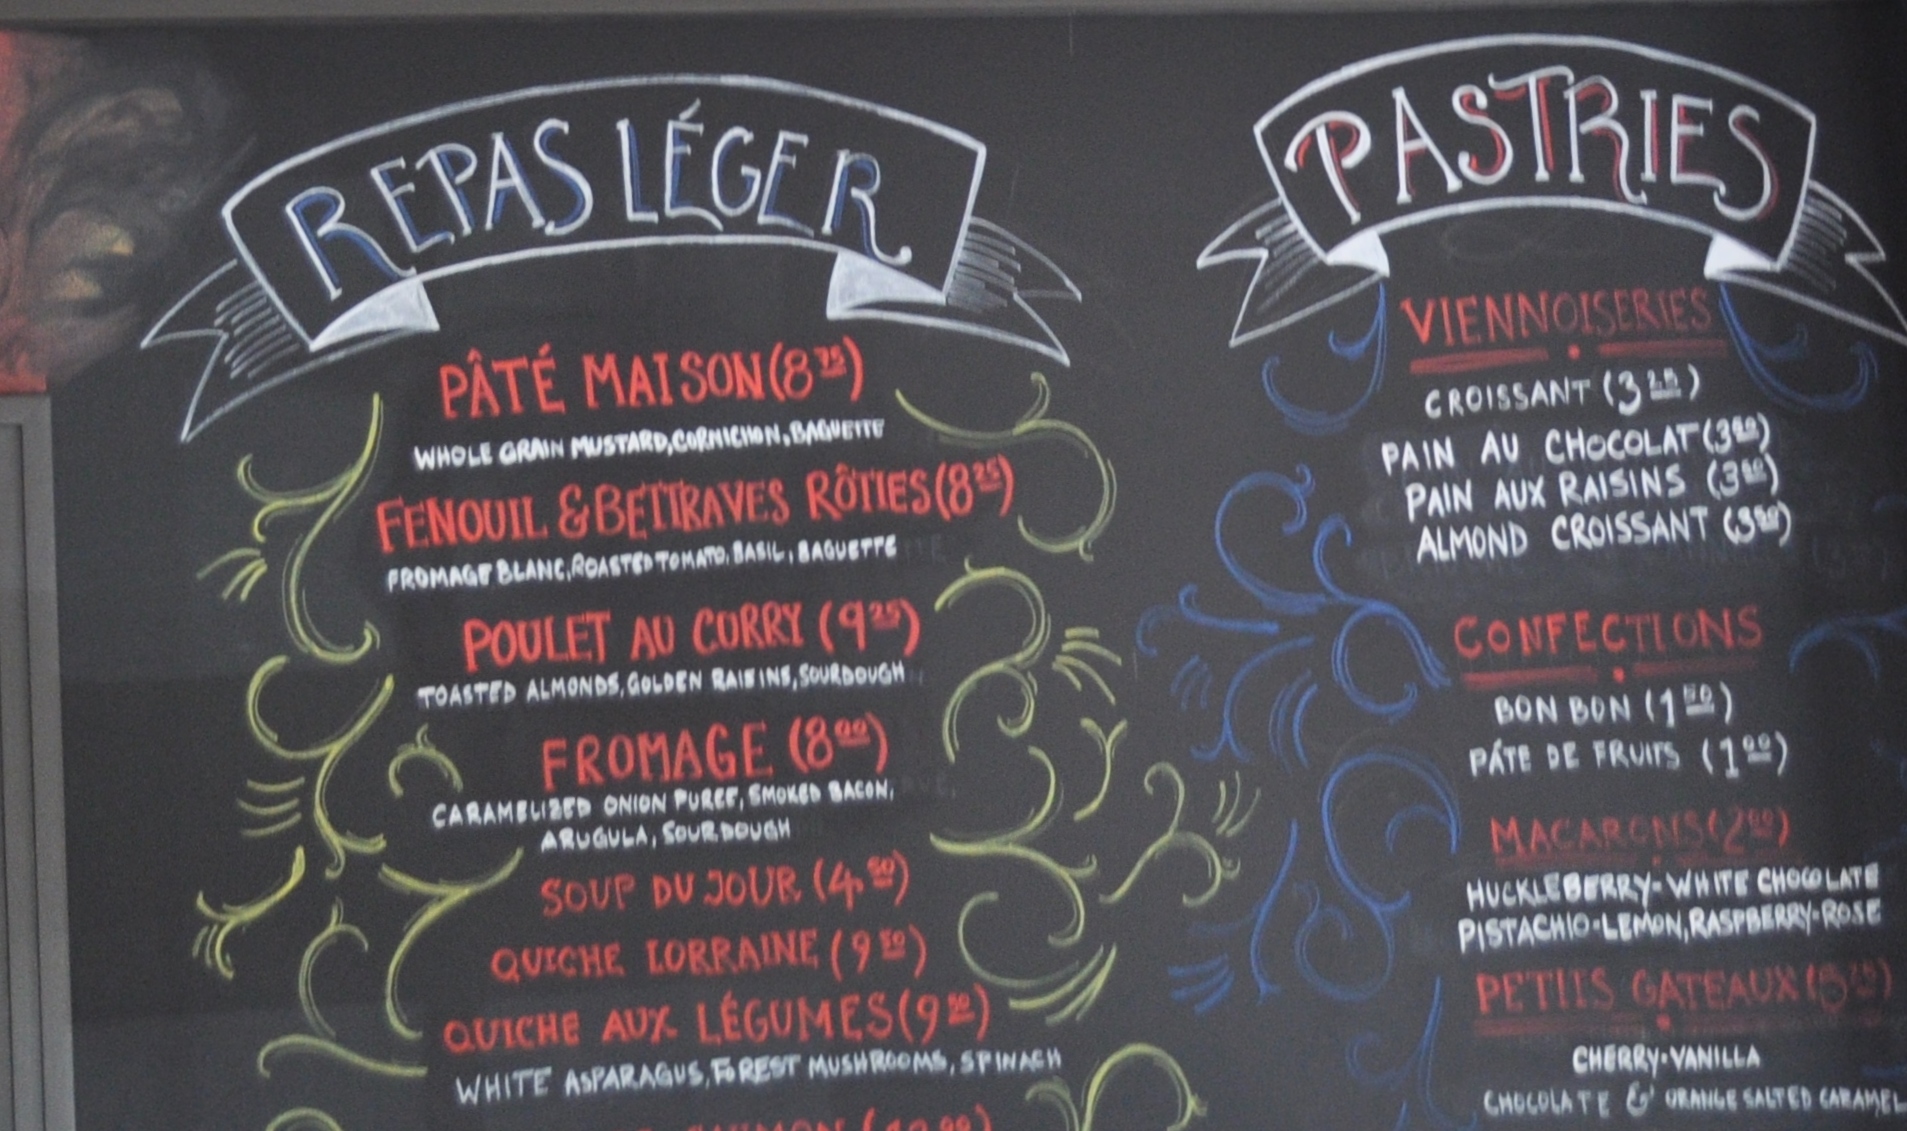 REPAS LÉGER
PÂTÉ MAISON (8 75)
WHOLE GRAIN MUSTARD, CORNICHON, BAGUETTE
FENOUIL & BETTRAVES RÔTIES (8 25)
FROMAGE BLANC, ROASTED TOMATO, BASIL, BAGUETTE
POULET AU CURRY (9 25)
TOASTED ALMONDS, GOLDEN RAISINS, SOURDOUGH
FROMAGE (8 00)
CARAMELIZED ONION PUREE, SMOKED BACON,
ARUGULA, SOURDOUGH
SOUP DU JOUR (4. 50)
QUICHE LORRAINE (9 50)
QUICHE AUX LÉGUMES (9 50)
WHITE ASPARAGUS, FOREST MUSHROOMS, SPINACH
PASTRIES
VIENNOISERIES
CROISSANT (3 25)
PAIN AU CHOCOLAT (3 50)
PAIN AUX RAISINS (3 50)
ALMOND CROISSANT (3 50)
CONFECTIONS
BON BON (1 50)
PÁTE DE FRUITS (1 00)
MACARONS (2 00)
HUCKLEBERRY-WHITE CHOCOLATE
PISTACHIO-LEMON, RASPBERRY-ROSE
PETITS GATEAUX
CHERRY-VANILLA
CHOCOLATE & ORANGE SALTED CARAMEL